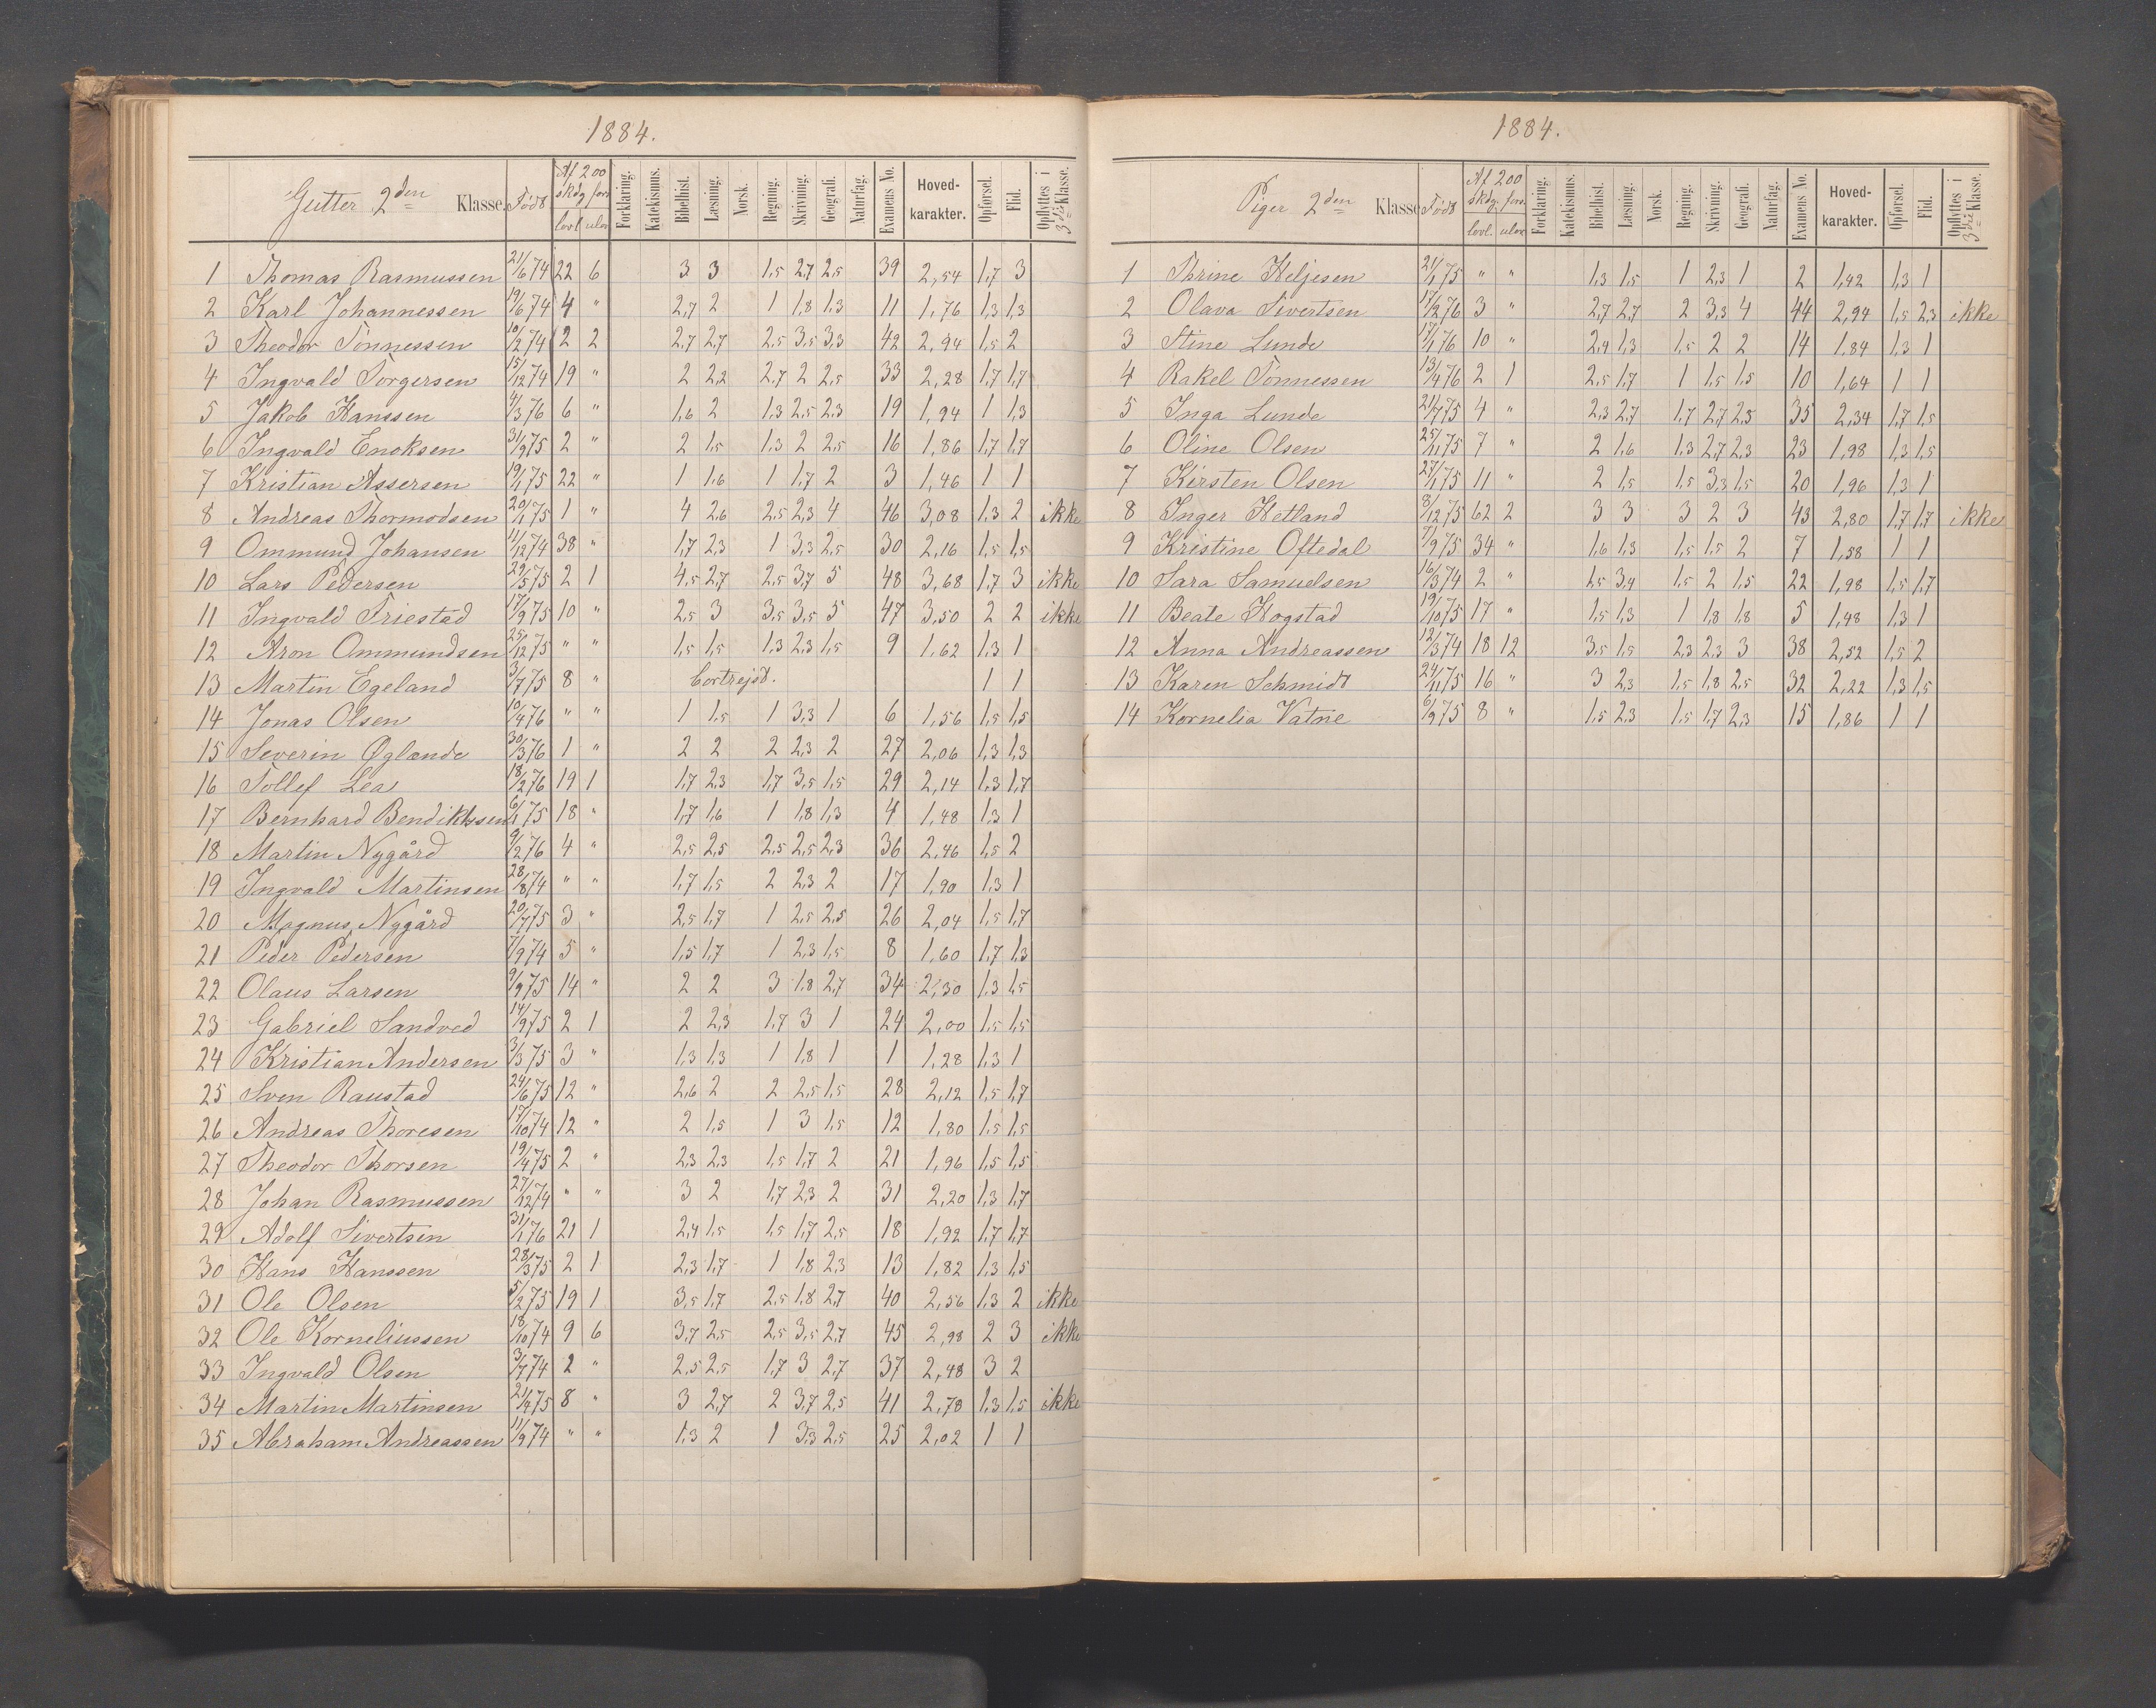 1884.
Gutter 2den Klasse. Født Af 200 skdg. fors. lovl. ulov. Forklaring. Katekismus. Bibelhist. Læsning. Norsk. Regning. Skrivning. Geografi. Naturfag. Examens No. Hoved-karakter. Opførsel. Flid. Opflyttes i 3die Klasse.
1 Thomas Rasmussen 21/6 74 22 6 3 3 1,5 2,7 2,5 39 2,54 1,7 3
2 Karl Johannessen 19/6 74 4 " 2,7 2 1 1,8 1,3 11 1,76 1,3 1,3
3 Theodor Tønnessen 10/2 74 2 2 2,7 2,7 2,5 3,5 3,3 42 2,94 1,5 2
4 Ingvald Torgersen 15/12 74 19 " 2 2,2 2,7 2 2,5 33 2,28 1,7 1,7
5 Jakob Hanssen 4/3 76 6 " 1,6 2 1,3 2,5 2,3 19 1,94 1 1,3
6 Ingvald Enoksen 31/9 75 2 " 2 1,5 1,3 2 2,5 16 1,86 1,7 1,7
7 Kristian Assersen 19/1 75 22 " 1 1,6 1 1,7 2 3 1,46 1 1
8 Andreas Thormodsen 20/1 75 1 " 4 2,6 2,5 2,3 4 46 3,08 1,3 2 ikke
9 Ommund Johansen 11/12 74 38 " 1,7 2,3 1 3,3 2,5 30 2,16 1,5 1,5
10 Lars Pedersen 29/5 75 2 1 4,5 2,7 2,5 3,7 5 48 3,68 1,7 3 ikke
11 Ingvald Friestad 17/9 75 10 " 2,5 3 3,5 3,5 5 47 3,50 2 2 ikke
12 Aron Ommundsen 25/12 75 " " 1,5 1,5 1,3 2,3 1,5 9 1,62 1,3 1
13 Martin Egeland 3/7 75 8 " bortrejst. 1 1
14 Jonas Olsen 10/4 76 " " 1 1,5 1 3,3 1 6 1,56 1,5 1,5
15 Severin Øglænde 30/3 76 1 " 2 2 2 2,3 2 27 2,06 1,3 1,3
16 Tollef Lea 18/2 76 19 1 1,7 2,3 1,7 3,5 1,5 29 2,14 1,3 1,7
17 Bernhard Bendiktssen 6/1 75 18 " 1,7 1,6 1 1,8 1,3 4 1,48 1,3 1
18 Martin Nygård 9/2 76 4 " 2,5 2,5 2,5 2,5 2,3 36 2,46 1,5 2
19 Ingvald Martinsen 28/8 74 " " 1,7 1,5 2 2,3 2 17 1,90 1,3 1
20 Magnus Nygård 20/7 75 3 " 2,5 1,7 1 2,5 2,5 26 2,04 1,5 1,7
21 Peder Pedersen 7/9 74 5 " 1,5 1,7 1 2,3 1,5 8 1,60 1,7 1,3
22 Olaus Larsen 9/9 75 14 " 2 2 3 1,8 2,7 34 2,30 1,3 1,5
23 Gabriel Sandved 14/9 75 2 1 2 2,3 1,7 3 1 24 2,00 1,5 1,5
24 Kristian Andersen 3/3 75 3 " 1,3 1,3 1 1,8 1 1 1,28 1,3 1
25 Sven Raustad 24/6 75 12 " 2,6 2 2 2,5 1,5 28 2,12 1,5 1,7
26 Andreas Thoresen 17/10 74 12 " 2 1,5 1 3 1,5 12 1,80 1,5 1,5
27 Theodor Thorsen 19/4 75 2 " 2,3 2,3 1,5 1,7 2 21 1,96 1,5 1,5
28 Johan Rasmussen 27/12 74 " " 3 2 1,7 2,3 2 31 2,20 1,3 1,7
29 Adolf Sivertsen 31/1 76 21 1 2,4 1,5 1,5 1,7 2,5 18 1,92 1,7 1,7
30 Hans Hanssen 28/3 75 2 1 2,3 1,7 1 1,8 2,3 13 1,82 1,3 1,5
31 Ole Olsen 5/2 75 19 1 3,5 1,7 2,5 1,8 2,7 40 2,56 1,3 2 ikke
32 Ole Korneliussen 18/10 74 9 6 3,7 2,5 2,5 3,5 2,7 45 2,98 2 3 ikke
33 Ingvald Olsen 3/7 74 2 " 2,5 2,5 1,7 3 2,7 37 2,48 3 2
34 Martin Martinsen 21/4 75 8 " 3 2,7 2 3,7 2,5 41 2,78 1,3 1,5 ikke
35 Abraham Andreassen 11/9 74 " " 1,3 2 1 3,3 2,5 25 2,02 1 1
1884.
Piger 2den Klasse Født Af 200 skdg. fors. lovl. ulov. Forklaring. Katekismus. Bibelhist. Læsning. Norsk. Regning. Skrivning. Geografi. Naturfag. Examens No. Hoved-karakter. Opførsel. Flid. Opflyttes i 3die Klasse.
1 Thrine Heljesen 21/1 75 " " 1,3 1,5 1 2,3 1 2 1,42 1,3 1
2 Olava Sivertsen 17/2 76 3 " 2,7 2,7 2 3,3 4 44 2,94 1,5 2,3 ikke
3 Stine Lunde 17/1 76 10 " 2,4 1,3 1,5 2 2 14 1,84 1,3 1
4 Rakel Tønnessen 13/4 76 2 1 2,5 1,7 1 1,5 1,5 10 1,64 1 1
5 Inga Lunde 21/7 75 4 " 2,3 2,7 1,7 2,7 2,3 35 2,34 1,7 1,5
6 Oline Olsen 25/11 75 7 " 2 1,6 1,3 2,7 2,3 23 1,98 1,3 1,5
7 Kirsten Olsen 27/1 75 11 " 2 1,5 1,5 3,3 1,5 20 1,96 1,3 1
8 Inger Hetland 8/12 75 62 2 3 3 3 2 3 43 2,80 1,7 1,7 ikke
9 Kristine Oftedal 7/9 75 34 " 1,6 1,3 1,5 1,5 2 7 1,58 1 1
10 Sara Samuelsen 16/3 74 2 " 1,5 3,4 1,5 2 1,5 22 1,98 1,5 1,7
11 Beate Hogstad 19/10 75 17 " 1,5 1,3 1 1,8 1,8 5 1,48 1,3 1
12 Anna Andreassen 12/3 74 18 12 3,5 1,5 2,3 2,3 3 38 2,52 1,5 2
13 Karen Schmidt 24/11 75 16 " 3 2,3 1,5 1,8 2,5 32 2,22 1,3 1,5
14 Kornelia Vatne 6/9 75 8 " 1,5 2,3 1,5 1,7 2,3 15 1,86 1 1